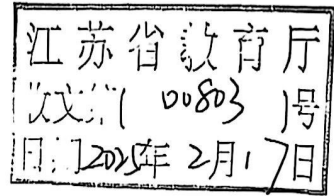 江苏省教育厅
收文第(00803)号
日期2025年2月17日